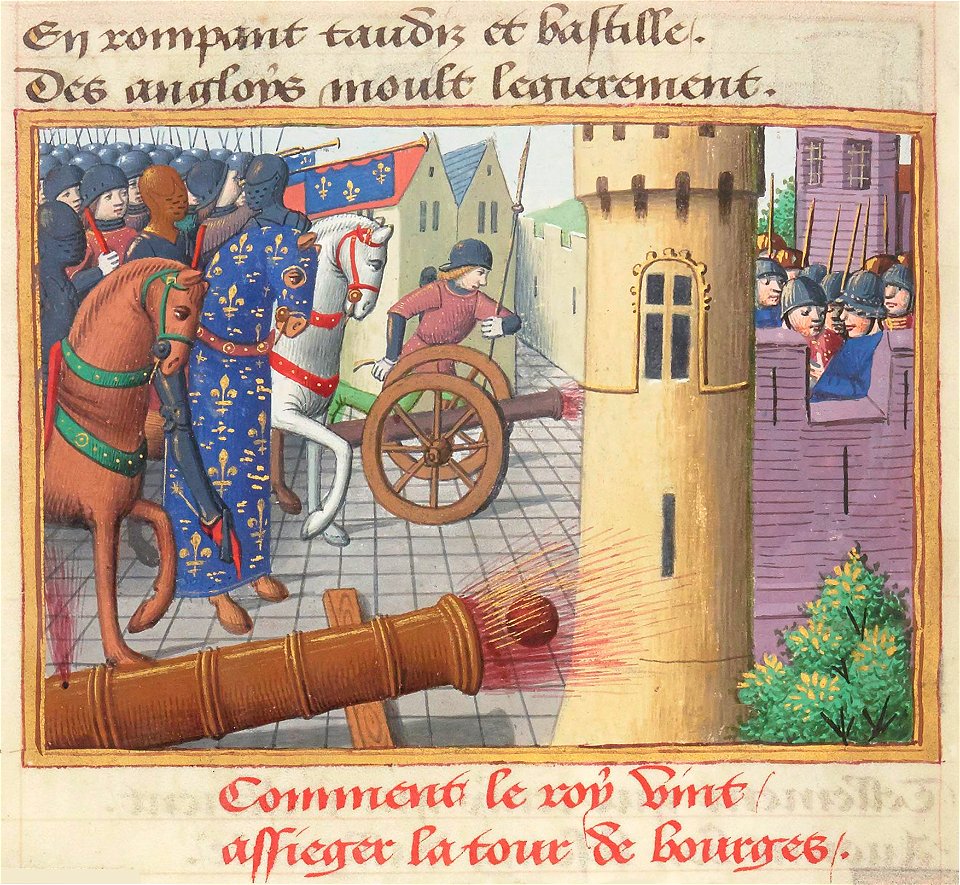 En rompant taudiz et bastille.
Des angloys moult legierement.
Comment le roy vint
assieger la tour de bourges.